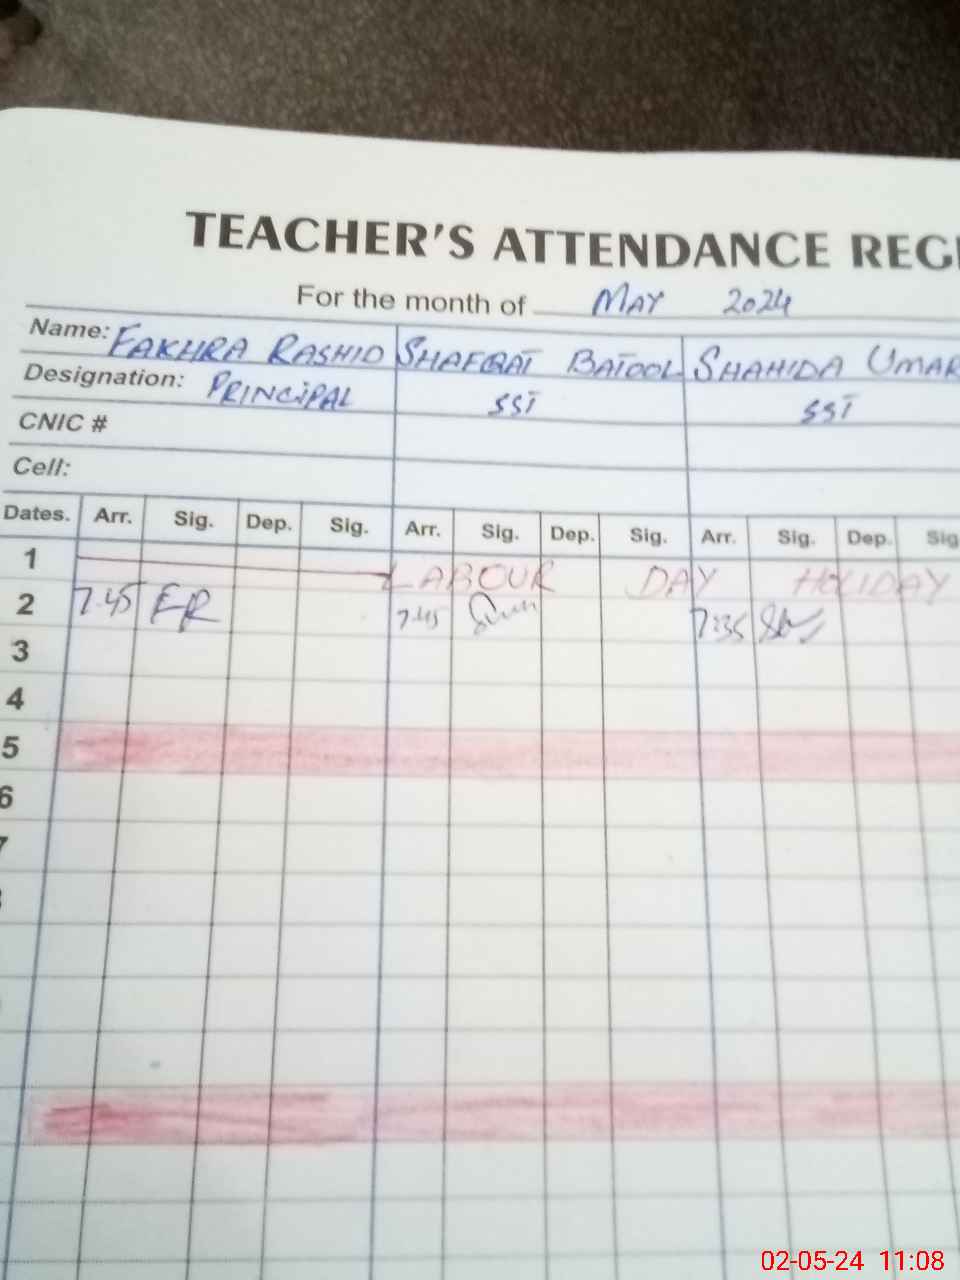 TEACHER'S ATTENDANCE REGI
For the month of MAY 2024
Name: FAKHRA RASHID SHAFQAT BATOOL SHAHIDA UMAR
Designation: PRINCIPAL SST SST
CNIC #
Cell:
Dates. Arr. Sig. Dep. Sig. Arr. Sig. Dep. Sig. Arr. Sig. Dep. Sig
1 LABOUR DAY HOLIDAY
2 7.45 FR 7.45 7:35
3
4
5
6
7
02-05-24 11:08